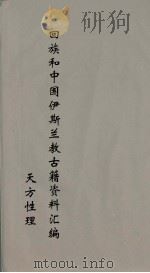 回族和中国伊斯兰教古籍资料汇编
天方性理
mtoou.info
mtoou.info